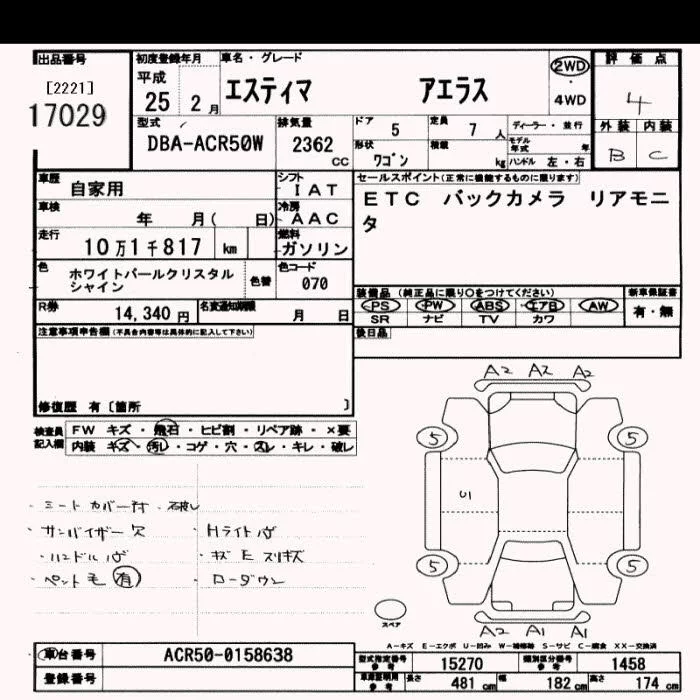 出品番号 初度登録年月 車名・グレード 評価点
[2221] 平成
17029 25 2月 エスティマ アエラス 2WD・4WD 4
型式 排気量 ドア 5 定員 7人 ディーラー・並行 外装 内装
DBA-ACR50W 2362 CC 形状 ワゴン 積載 kg モデル年式 年 ハンドル 左・右 B C
車歴 自家用 シフト IAT セールスポイント(正常に機能するものに限ります)
車検 年 月( 日) 冷房 AAC ETC バックカメラ リアモニ
タ
走行 10万1千817 km 燃料 ガソリン
色 ホワイトパールクリスタル 色替 色コード
シャイン 070
装備品 (純正品に限り○をつけてください) 新車保証書
R券 14,340円 名変通知期限 月 日 PS PW ABS エアB AW 有・無
SR ナビ TV カワ
注意事項申告欄(不具合内容等は具体的に記入して下さい) 後日品
修復歴 有〔箇所 〕
A2 A2 A2
検査員 FW キズ・飛石・ヒビ割・リペア跡・×要
記入欄 内装 キズ・汚レ・コゲ・穴・スレ・キレ・破レ
5 5
U1
・シートカバー付・破レ
・サンバイザー欠 ・Hライトキズ
・ハンドルキズ ・キズ E スリキズ
・ペット毛 有 ・ローダウン
5 5
スペア
A2 A1 A1
A-キズ E-エクボ U-凹み W-補修跡 S-サビ C-腐食 XX-交換済
車台番号 ACR50-0158638 型式指定番号 参考 15270 類別区分番号 参考 1458
登録番号 車庫証明用 参考 長さ 481 cm 幅 182 cm 高さ 174 cm